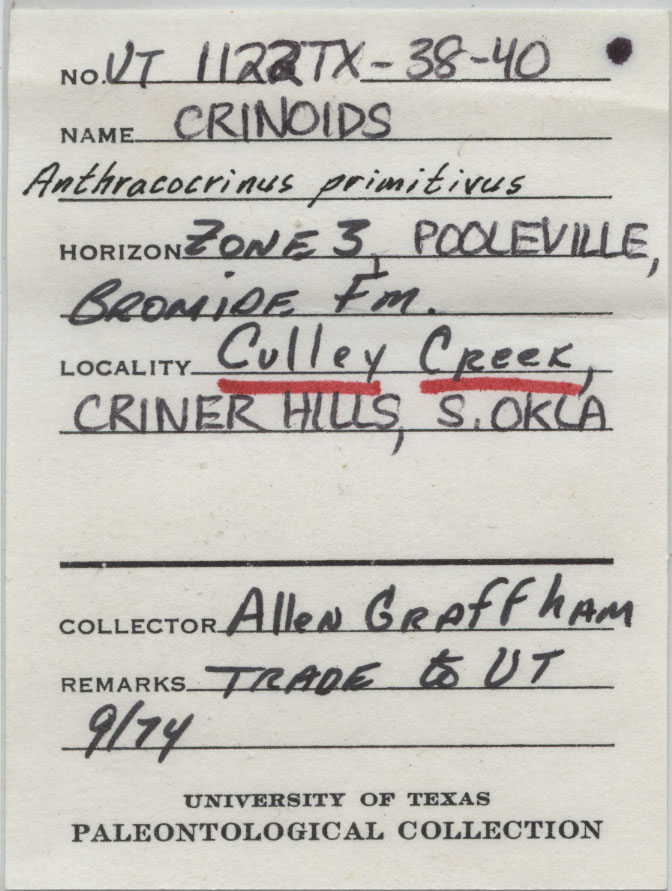 NO. UT 1122TX-38-40
NAME CRINOIDS
Anthracocrinus primitivus
HORIZON ZONE 3, POOLEVILLE,
BROMIDE Fm.
LOCALITY Culley Creek,
CRINER HILLS, S. OKLA
COLLECTOR Allen Graffham
REMARKS TRADE to UT
9/74
UNIVERSITY OF TEXAS
PALEONTOLOGICAL COLLECTION